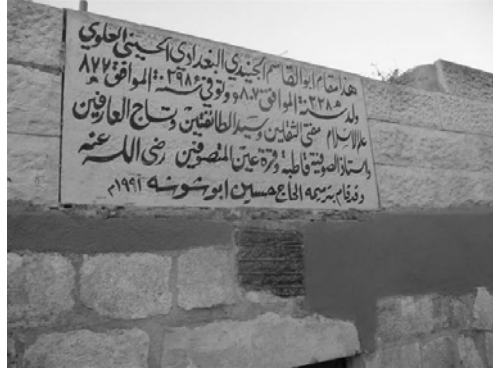 هذا مقام ابو القاسم الجنيدي البغدادي الحسيني العلوي
ولد سنة ٢٢٨ﻫ الموافق ٨٠٧م وتوفي سنة ٢٩٨ﻫ الموافق ٨٧٧م
علم الاسلام مفتي الثقلين وسيد الطائفتين وتاج العارفين
واستاذ الصوفية قاطبة وقرة عين المتصوفين رضي الله عنه
وقد قام بترميمه الحاج حسين ابو شوشه ١٩٩١م